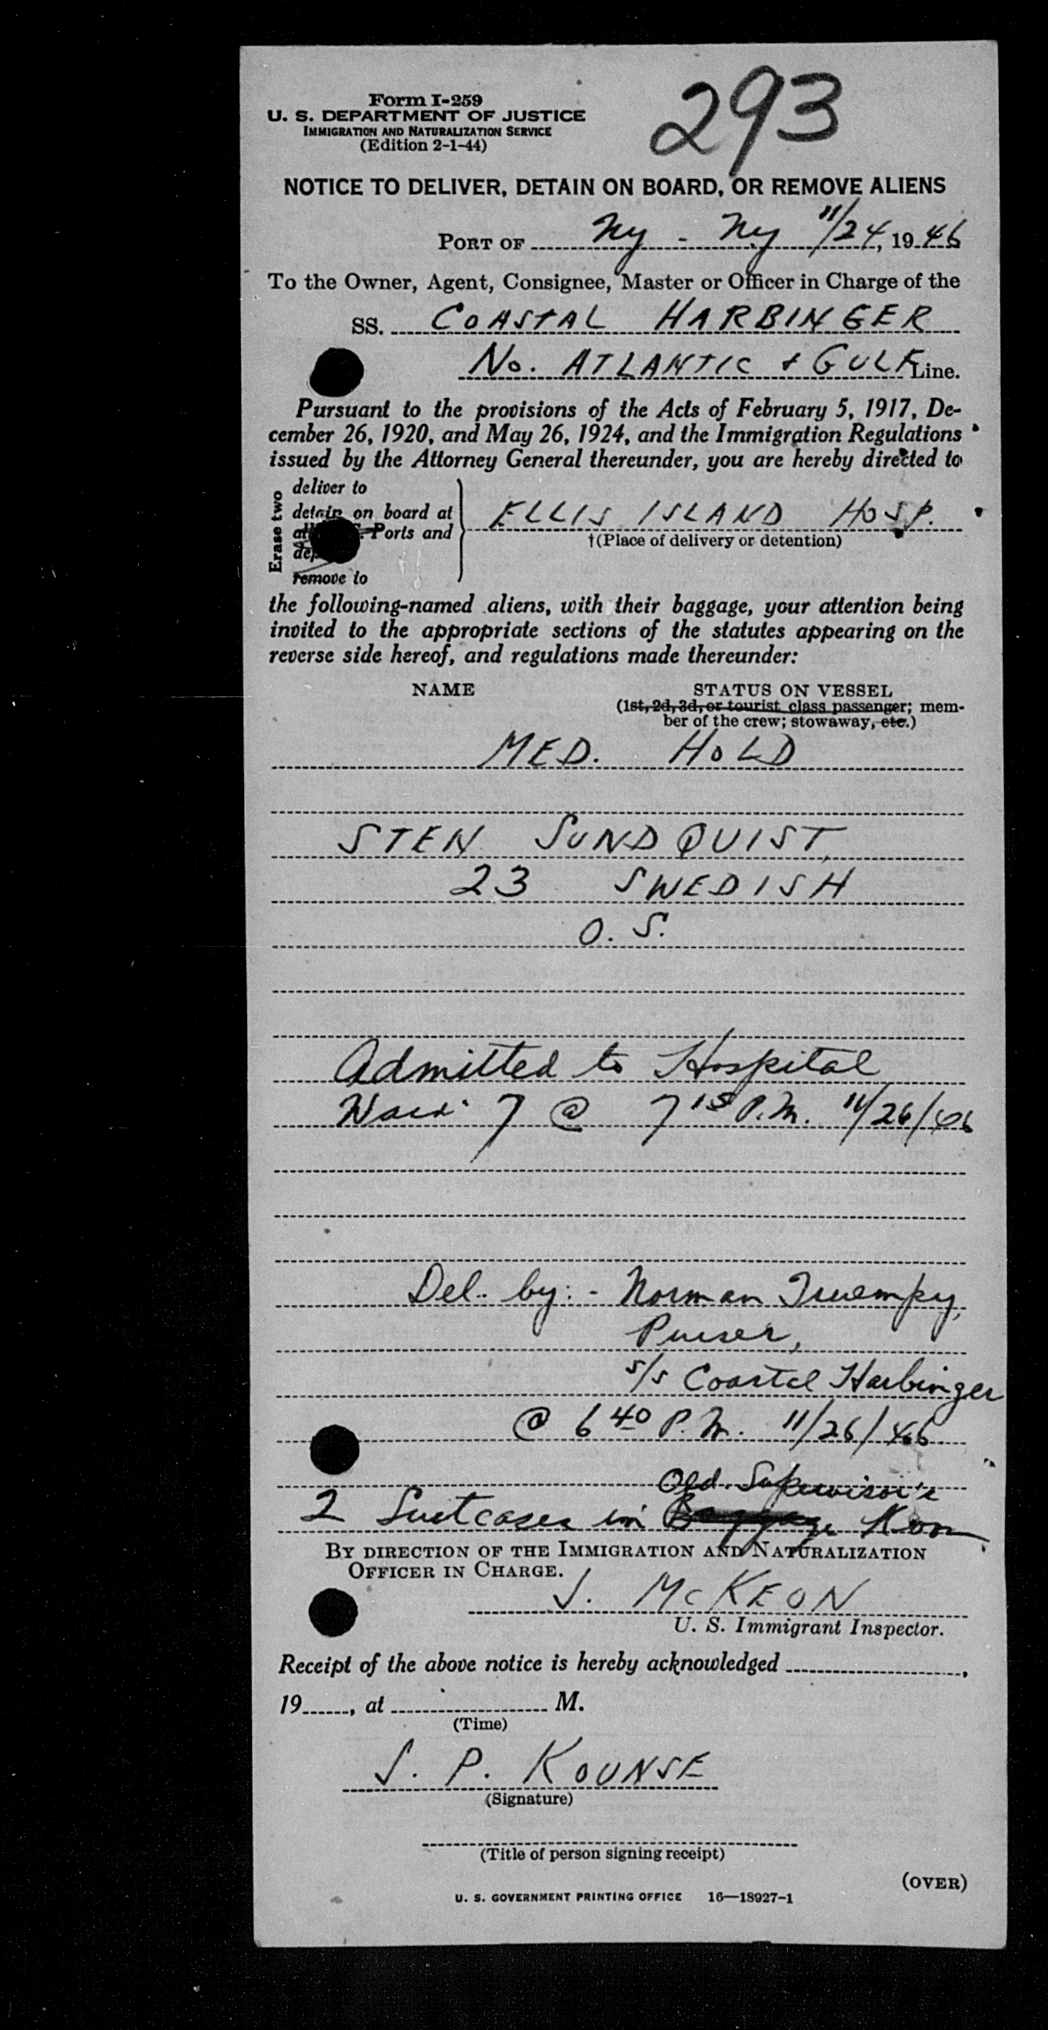 293
Form I-259
U. S. DEPARTMENT OF JUSTICE
IMMIGRATION AND NATURALIZATION SERVICE
(Edition 2-1-44)
NOTICE TO DELIVER, DETAIN ON BOARD, OR REMOVE ALIENS
PORT OF Ny - Ny 11/24, 1946
To the Owner, Agent, Consignee, Master or Officer in Charge of the
SS. COASTAL HARBINGER
No. ATLANTIC + GULF Line.
Pursuant to the provisions of the Acts of February 5, 1917, De-
cember 26, 1920, and May 26, 1924, and the Immigration Regulations
issued by the Attorney General thereunder, you are hereby directed to
Erase two
deliver to
detain on board at
Ports and
remove to
ELLIS ISLAND HOSP.
†(Place of delivery or detention)
the following-named aliens, with their baggage, your attention being
invited to the appropriate sections of the statutes appearing on the
reverse side hereof, and regulations made thereunder:
NAME STATUS ON VESSEL
(1st, 2d, 3d, or tourist class passenger; mem-
ber of the crew; stowaway, etc.)
MED. HOLD
STEN SUNDQUIST,
23 SWEDISH
O. S.
Admitted to Hospital
Ward 7 @ 7 15 P.M. 11/26/46
Del. by: - Norman
Purser,
s/s Coastal Harbinger
@ 6 40 P.M. 11/26/46
Old Supervisor's
2 Suitcases in Baggage Room
BY DIRECTION OF THE IMMIGRATION AND NATURALIZATION
OFFICER IN CHARGE.
J. McKEON
U. S. Immigrant Inspector.
Receipt of the above notice is hereby acknowledged ,
19 , at M.
(Time)
S. P. KOUNSE
(Signature)
(Title of person signing receipt)
(OVER)
U. S. GOVERNMENT PRINTING OFFICE 16—18927-1